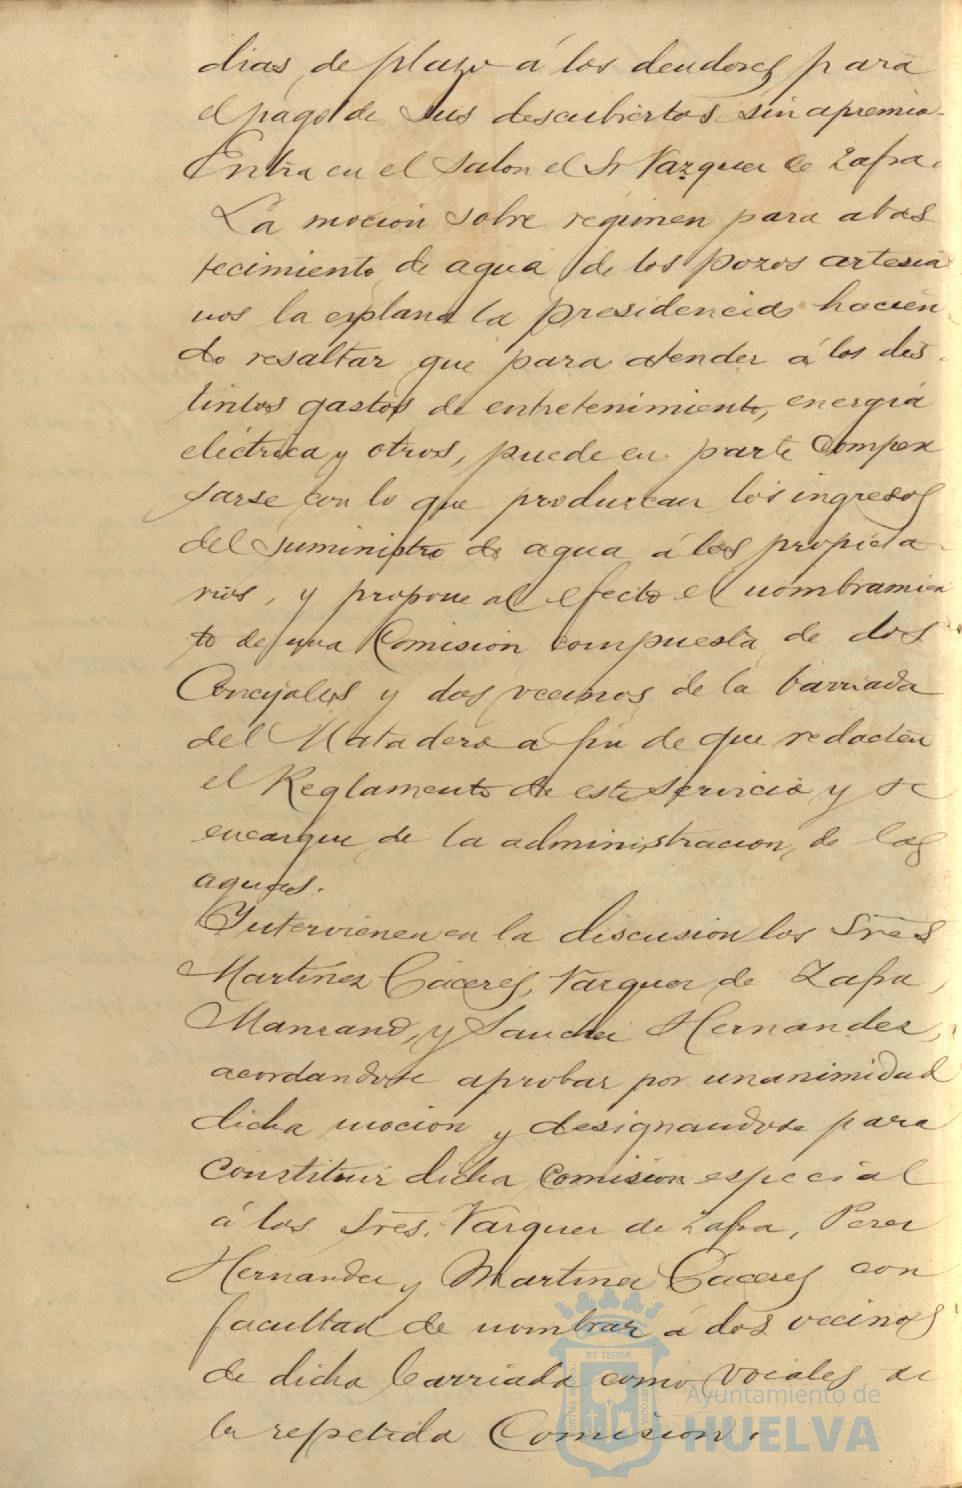 dias de plazo á los deudores para
el pago de sus descubiertos sin apremio.
Entra en el salon el Sr Vazquez de Zafra.
La moción sobre regimen para abas
tecimiento de agua de los pozos artesia
nos la explana la presidencia hacien
do resaltar que para atender á los dis
tintos gastos de entretenimiento, energia
eléctrica y otros, puede en parte compen
sarse con lo que produzcan los ingresos
del suministro de agua á los propieta
rios, y propone al efecto el nombramien
to de una Comision compuesta de dos
Concejales y dos vecinos de la barriada
del Matadero a fin de que redacten
el Reglamento de este servicio y se
encargue de la administracion de las
aguas.
Intervienen en la discusion los Sres
Martinez Cáceres, Vazquez de Zafra,
Manzano, y Sanchez Hernandez,
acordandose aprobar por unanimidad
dicha mocion y designandose para
constituir dicha Comision especial
á los Sres. Vazquez de Zafra, Perez
Hernandez y Martinez Cáceres con
facultad de nombrar á dos vecinos
de dicha barriada como vocales de
la repetida Comision.
ET TERRÆ
Ayuntamiento de
HUELVA